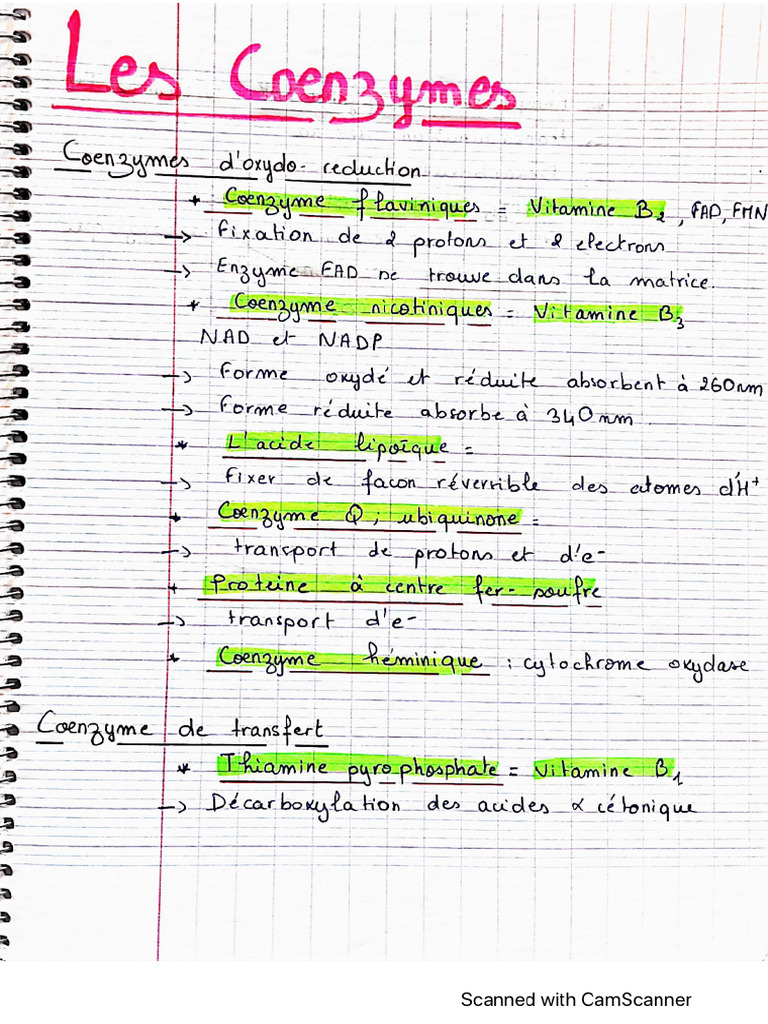 Les Coenzymes
Coenzymes d'oxydo-reduction
+ Coenzyme flaviniques = Vitamine B2, FAD, FMN
-> fixation de 2 protons et 2 electrons
-> Enzyme FAD se trouve dans la matrice.
* Coenzyme nicotiniques = Vitamine B3
NAD et NADP
-> forme oxydé et réduite absorbent à 260nm
-> forme réduite absorbe à 340nm.
* L'acide lipoïque =
-> fixer de facon réversible des atomes d'H+
* Coenzyme Q ; ubiquinone =
-> transport de protons et d'e-
+ Proteine à centre fer-soufre
-> transport d'e-
* Coenzyme héminique : cytochrome oxydase
Coenzyme de transfert
* Thiamine pyrophosphate = Vitamine B1
-> Décarboxylation des acides α cétonique
Scanned with CamScanner